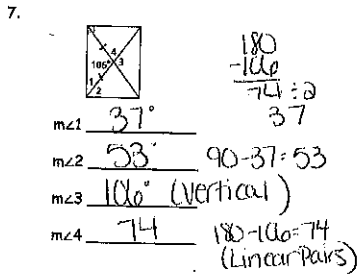 7.
4
106°
3
1
2
180
-106
74 ÷ 2
37
m∠1 37°
m∠2 53° 90-37=53
m∠3 106° (vertical)
m∠4 74 180-106=74
(Linear Pairs)